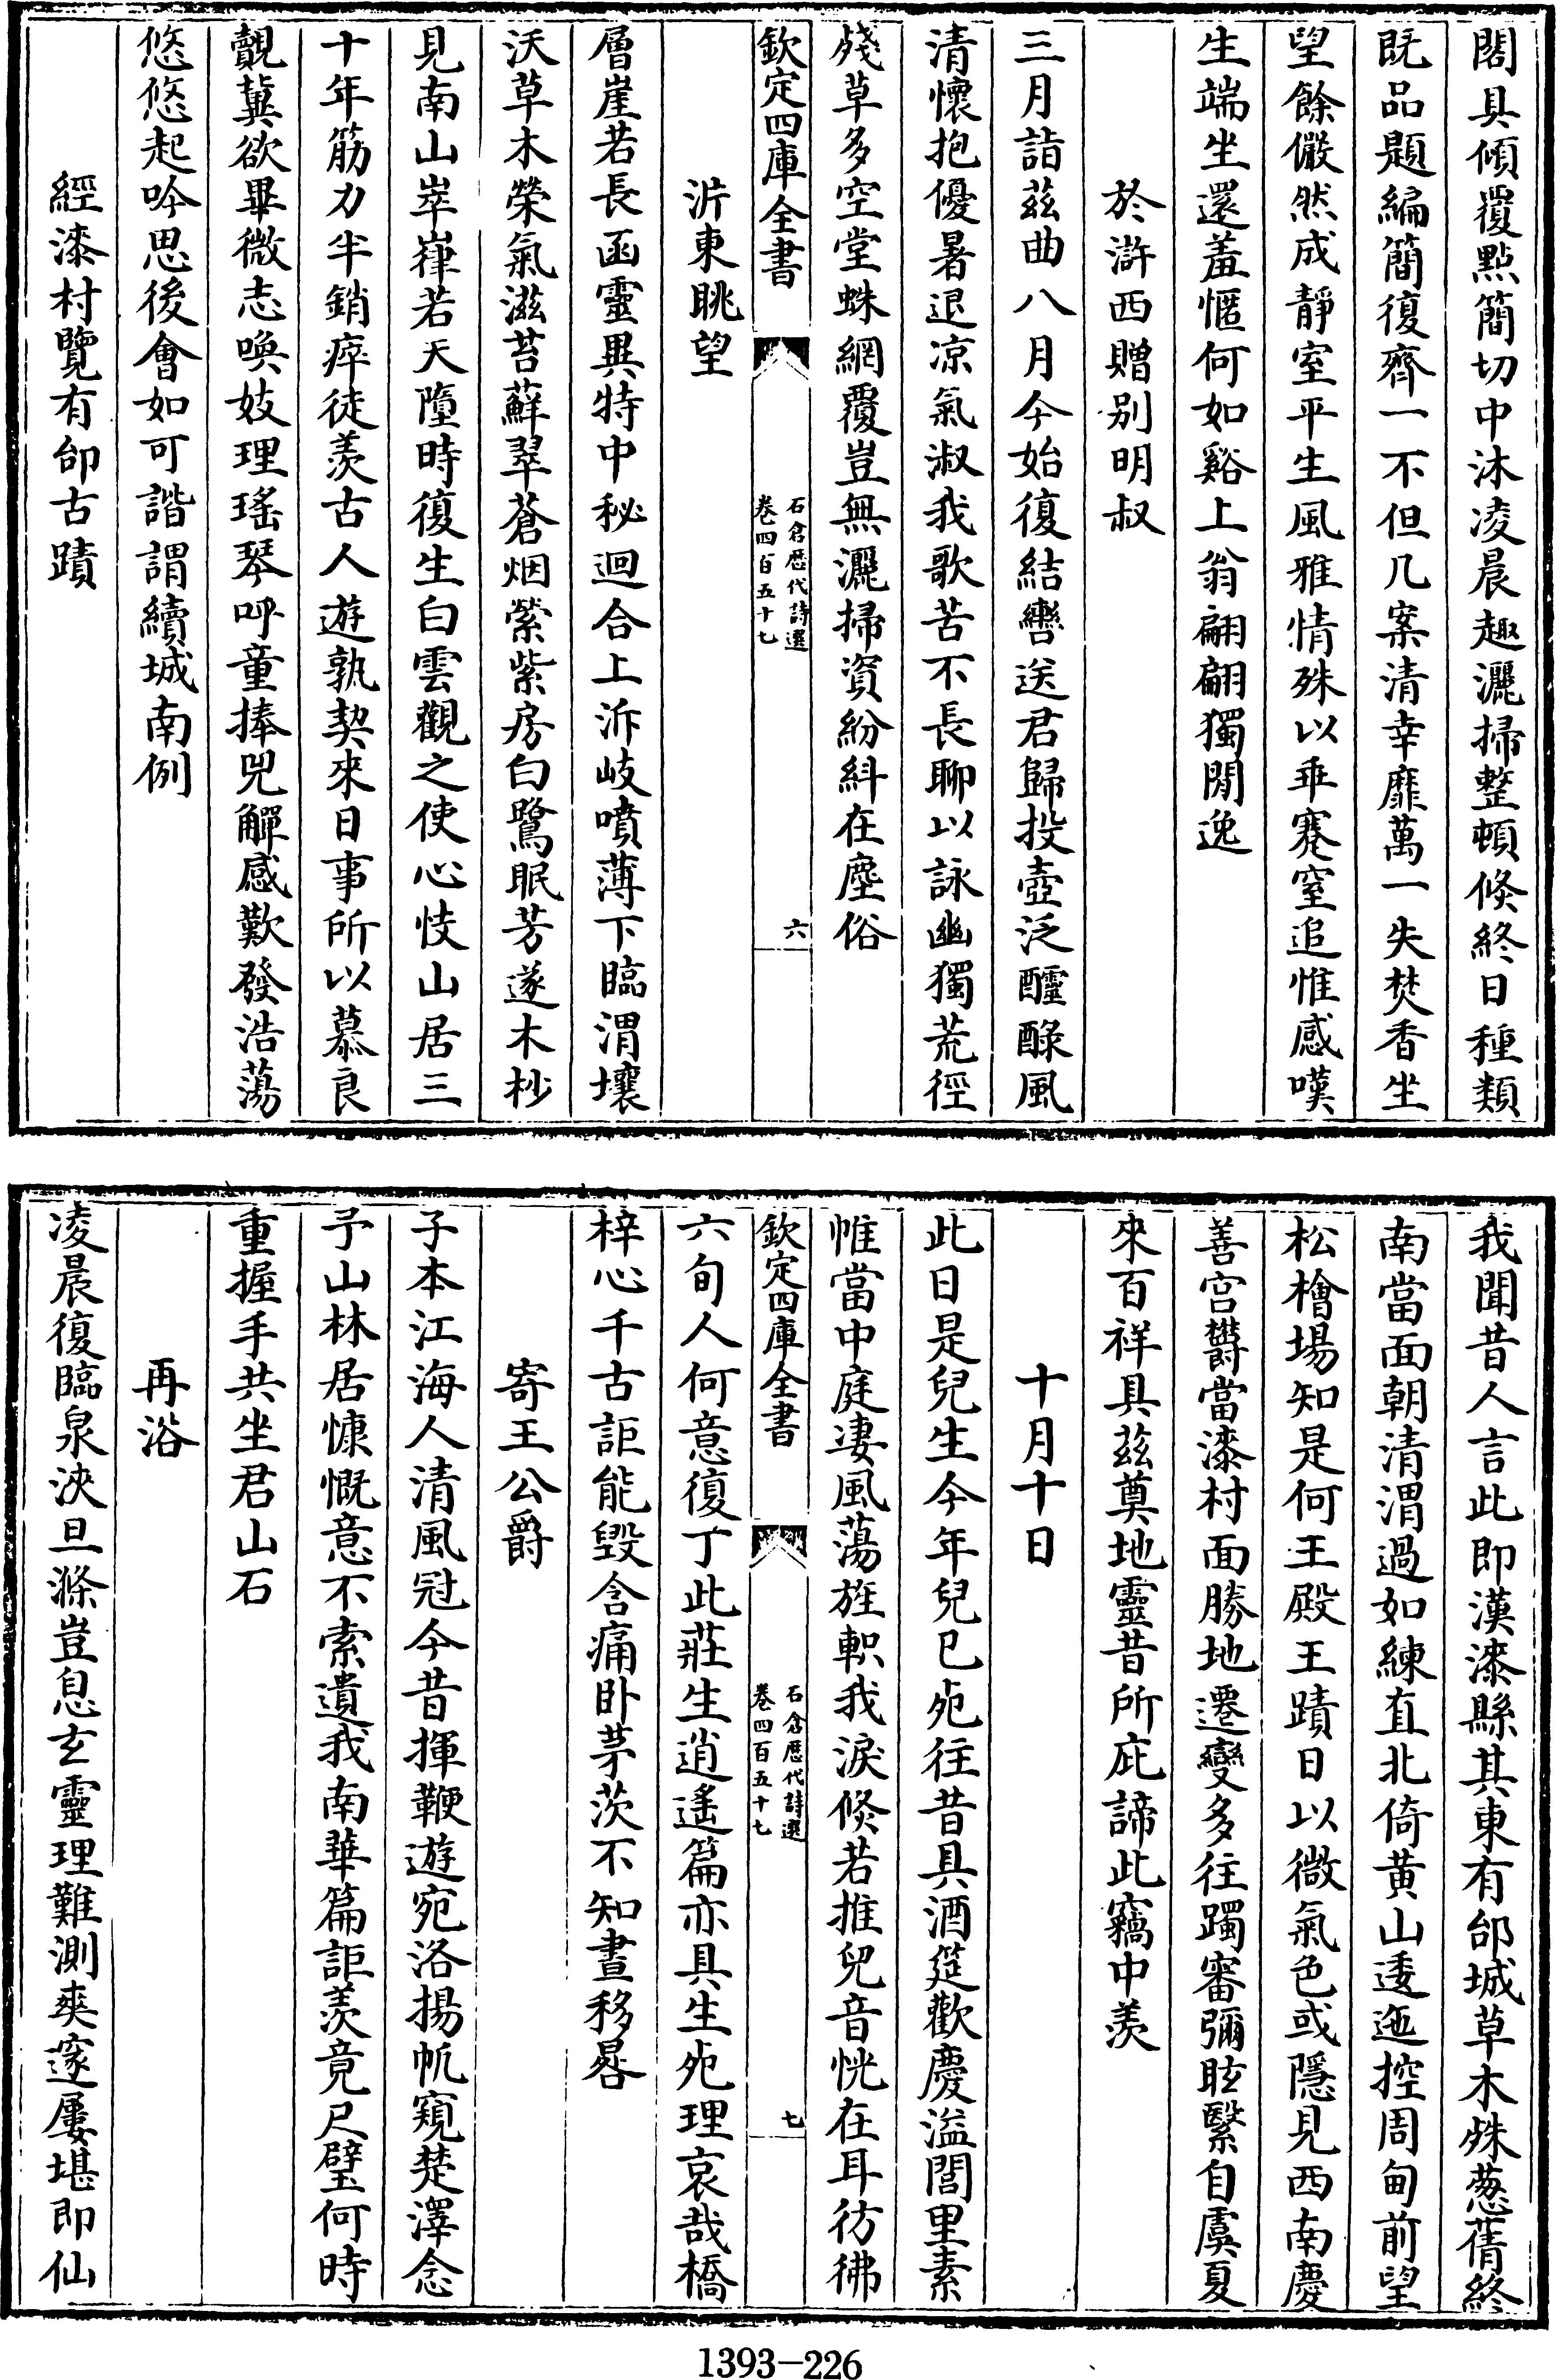 閣具傾覆㸃簡切中沐凌晨趣灑掃整頓倐終日種類
既品題編簡復齊一不但几案清幸靡萬一失焚香坐
望餘儼然成靜室平生風雅情殊以乖蹇窒追惟感嘆
生端坐還羞愜何如谿上翁翩翩獨閒逸
於滸西贈别明叔
三月詣兹曲八月今始復結轡送君歸投壺泛醽醁風
清懷抱優暑退凉氣淑我歌苦不長聊以詠幽獨荒徑
殘草多空堂蛛網覆豈無灑掃資紛糾在塵俗
欽定四庫全書
石倉歴代詩選
卷四百五十七
六
沜東眺望
層崖若長函靈異特中秘迴合上泝岐噴薄下臨渭壤
沃草木榮氣滋苔蘚翠蒼烟縈紫房白鷺眠芳蓫木杪
見南山崒嵂若天墮時復生白雲觀之使心忮山居三
十年筋力半銷瘁徒羨古人遊孰契來日事所以慕良
覿冀欲畢微志喚妓理瑤琴呼童捧兕觶感歎發浩蕩
悠悠起吟思後會如可諧謂續城南例
經漆村覽有邰古蹟
我聞昔人言此即漢漆縣其東有邰城草木殊葱蒨終
南當面朝清渭過如練直北倚黄山逶迤控周甸前望
松檜場知是何王殿王蹟日以微氣色或隱見西南慶
善宫欝當漆村面勝地遷變多往躅審彌眩繄自虞夏
來百祥具兹奠地靈昔所庇諦此竊中羨
十月十日
此日是兒生今年兒已死往昔具酒筵歡慶溢閭里素
帷當中庭凄風蕩旌軹我淚倐若推兒音恍在耳彷彿
欽定四庫全書
石倉歴代詩選
卷四百五十七
七
六旬人何意復丁此莊生逍遙篇亦具生死理哀哉橋
梓心千古詎能毁含痛卧茅茨不知晝移晷
寄王公爵
子本江海人清風冠今昔揮鞭遊宛洛揚帆窺楚澤念
予山林居慷慨意不索遺我南華篇詎羨竟尺璧何時
重握手共坐君山石
再浴
凌晨復臨泉浹旦滌豈息玄靈理難測爽邃屢堪即仙
1393-226